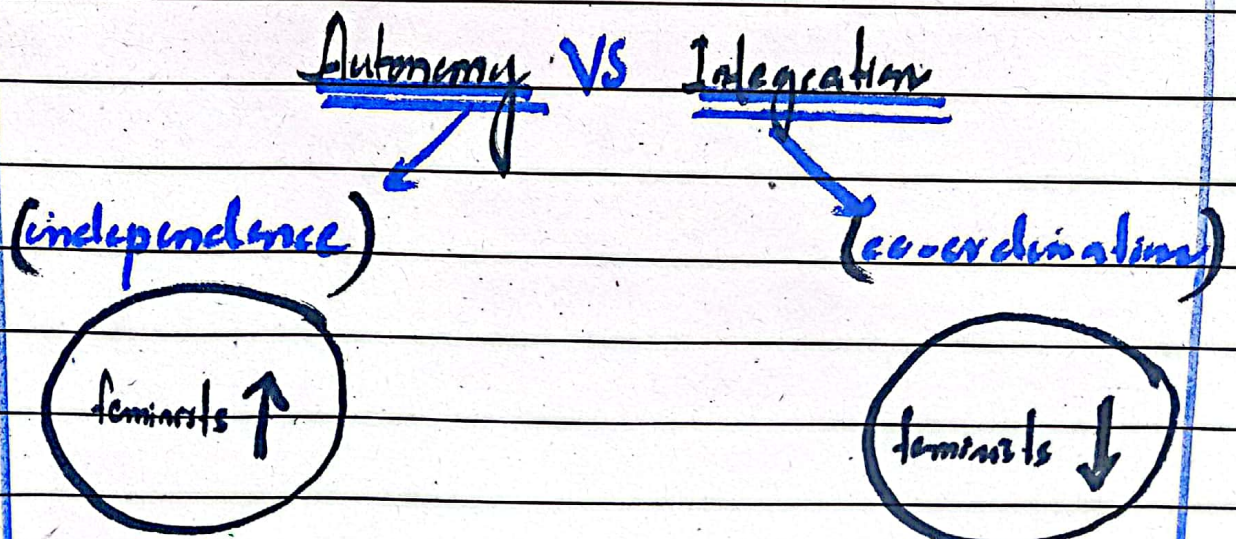 Autonomy VS Integration
(independence) (co-ordination)
feminists ↑ feminists ↓